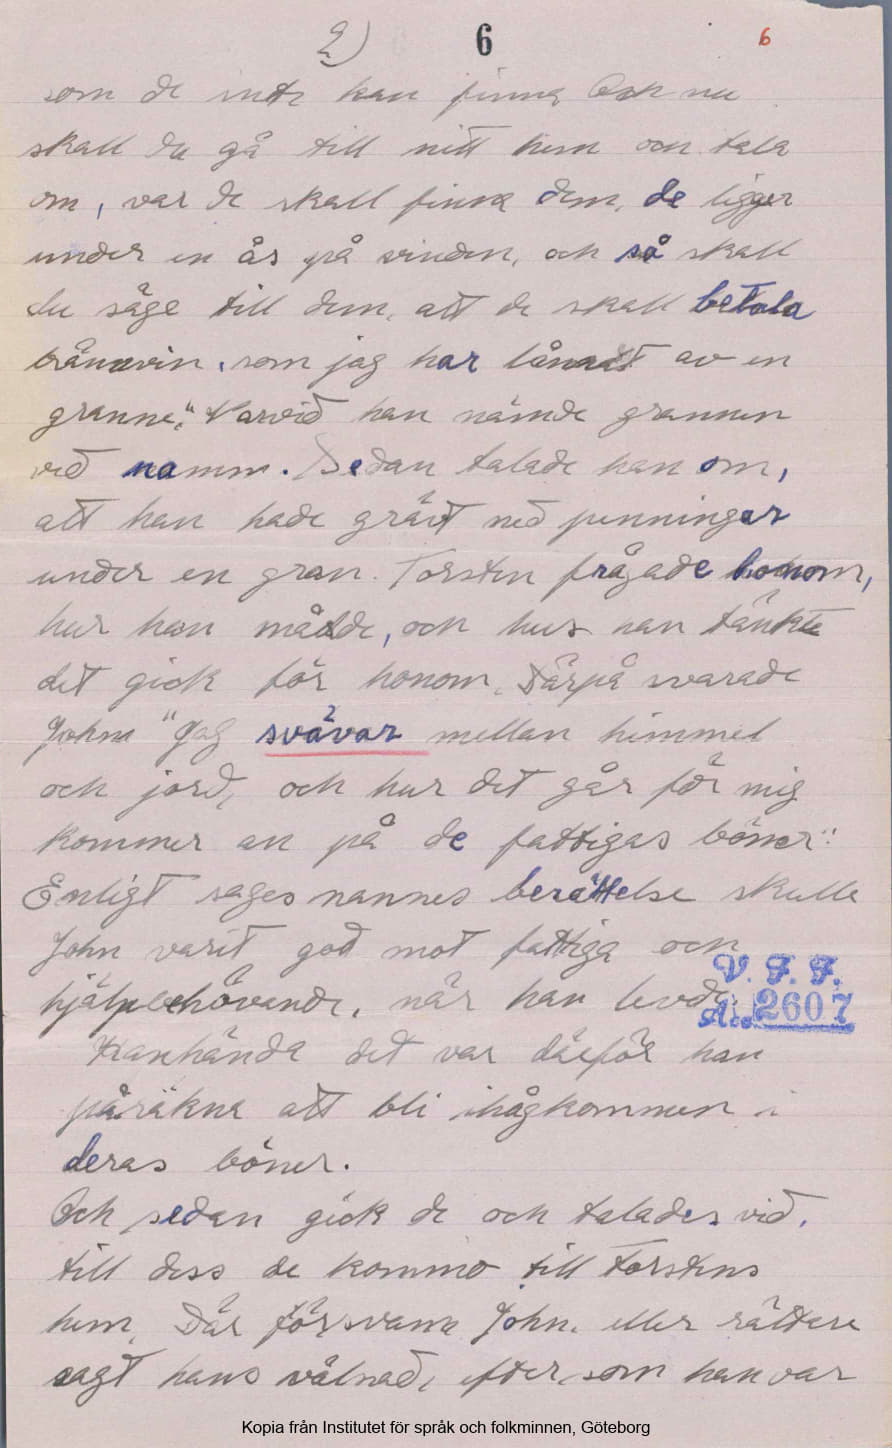 2) 6 6
som de inte kan finna Och nu
skall du gå till mitt hem och tala
om, var de skall finna dem, de ligger
under en ås på vinden, och så skall
du säge till dem, att de skall betala
brännvin, som jag har lånat av en
granne", Varvid han nämde grannen
vid namm. Sedan talade han om,
att han hade grävt ned penningar
under en gran. Torsten frågade honom,
hur han mådde, och hur han tänkte
det gick för honom, Därpå svarade
John "Jag svävar mellan himmel
och jord, och hur det går för mig
kommer an på de fattigas böner".
Enligt sagesmannes berättelse skulle
John varit god mot fattiga och
V. F. F.
hjälpbehövande, när han levde.
Acc. 2607
Kanhända det var därför han
påräkna att bli ihågkommen i
deras böner.
Och sedan gick de och talades vid,
till dess de kommo till Torstens
hem, Där försvann John, eller rättare
sagt hans vålnad, efter som han var
Kopia från Institutet för språk och folkminnen, Göteborg